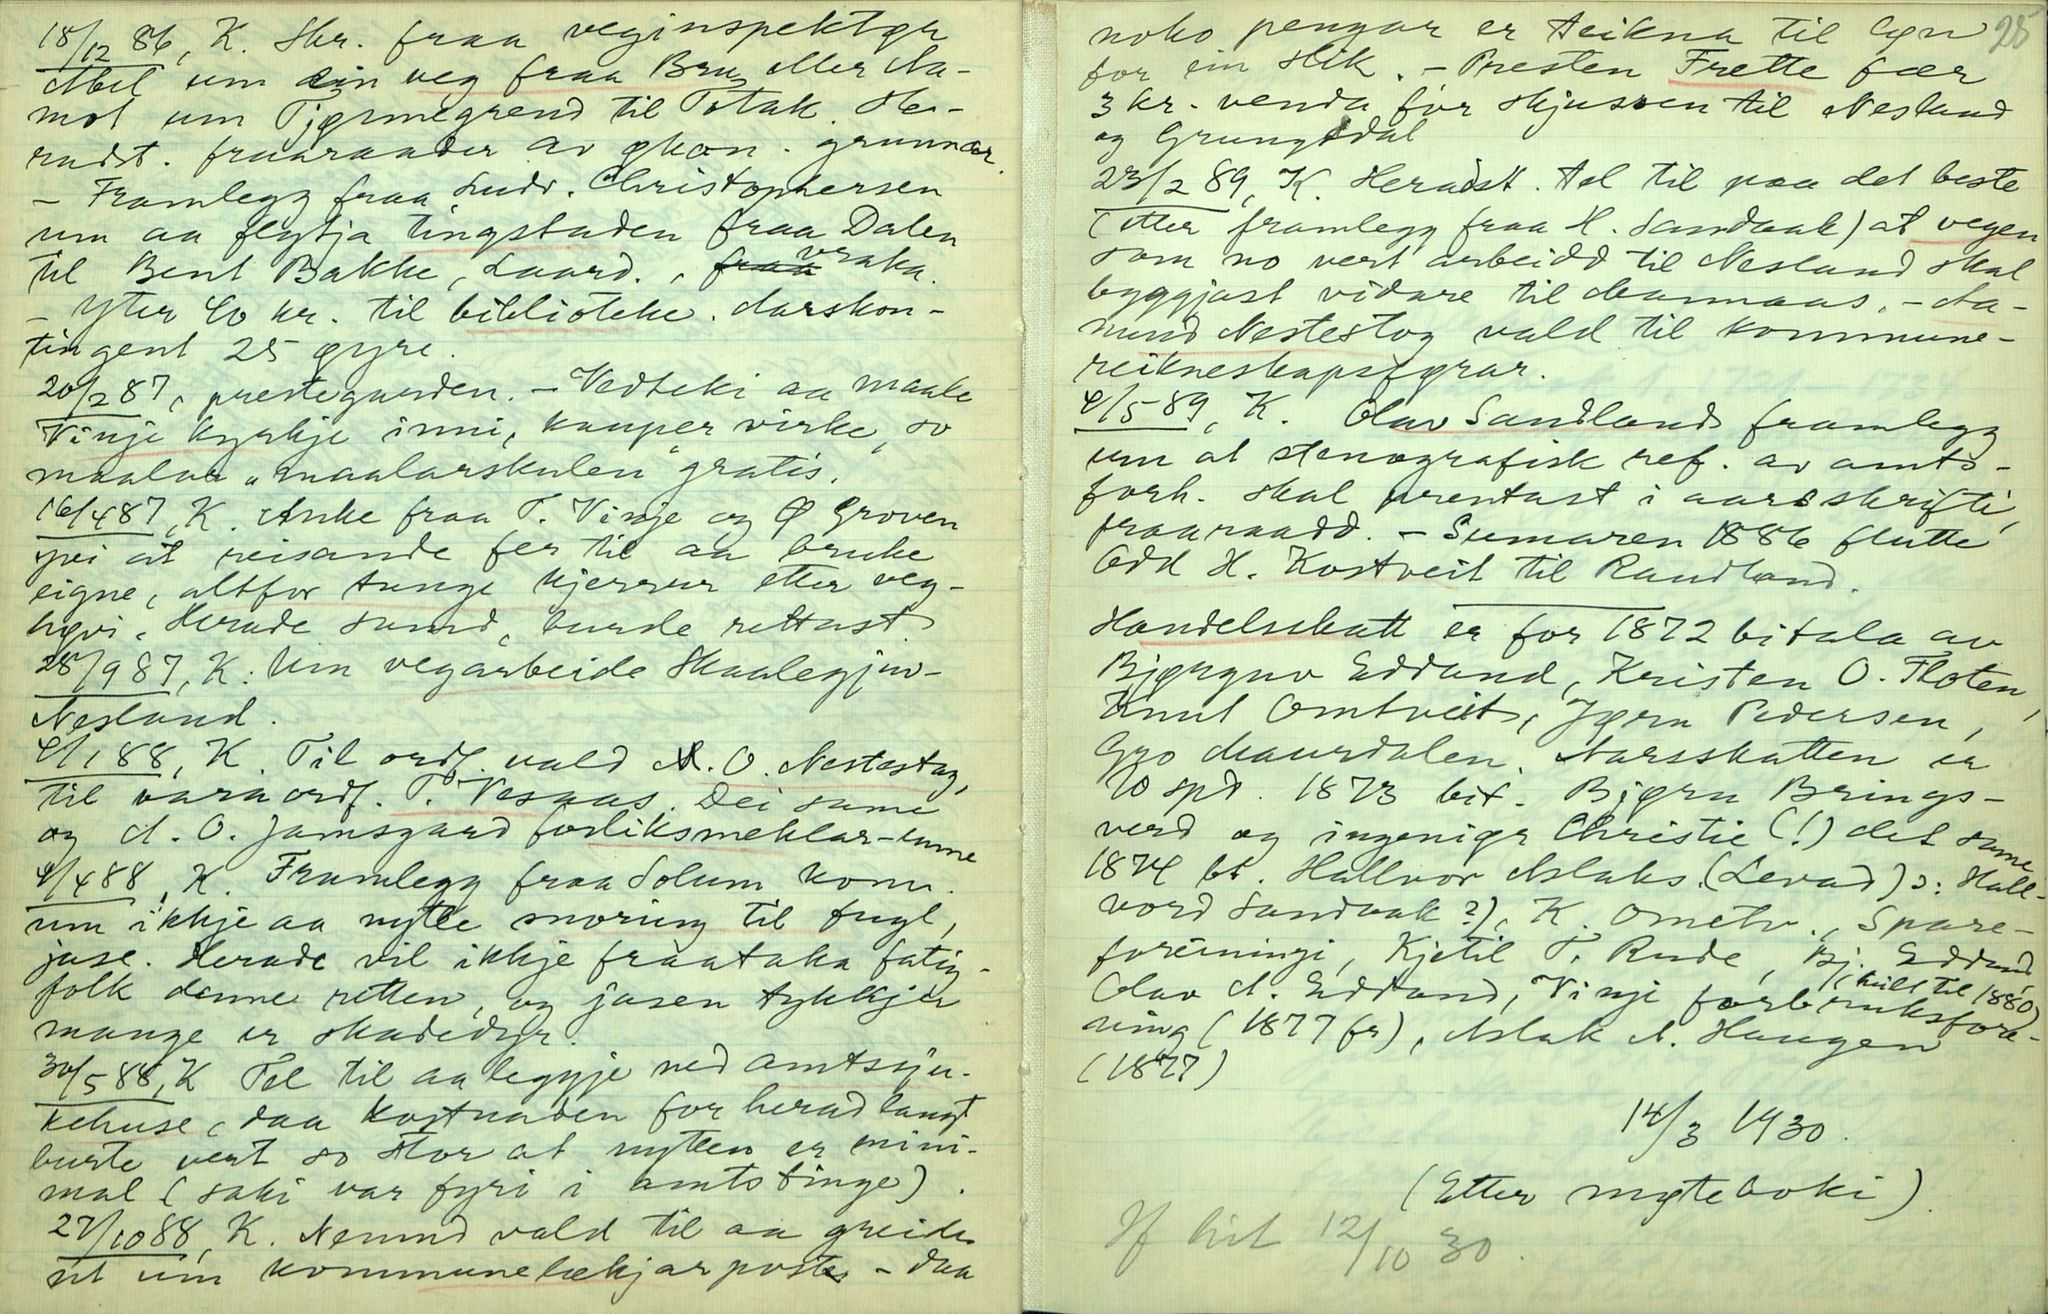 18/12 86, K. Skr. fraa veginspektør
Abel um ein veg fraa Bru eller Aa-
mot um Tjønnegrend til Totak. He-
radst. fraaraader av økon. grunnar.
- Framlegg fraa Ludv. Christophersen
um aa flytja tingstaden fraa Dalen
til Bent Bakke, Laard., vraka.
- Yter 40 kr. til biblioteke. Aarskon-
tingent 25 øyre.
20/2 87, prestegarden. - Vedteki aa maale
Vinje kyrkje inni, kauper virke, so
maalar "maalarskulen" gratis.
16/4 87, K. Anke fraa T. Vinje og Ø Groven
yvi at reisande fer til aa bruke
eigne, altfor tunge kjerrur etter veg-
løyvi. Herade samd, burde rettast.
28/9 87, K: Um vegarbeide Skaalegjuv-
Nesland.
4/1 88, K. Til ordf. vald A. O. Nestestog,
til varaordf. T. Vesaas. Dei same
og A. O. Jamsgard forliksmeklar-emne
4/4 88, K. Framlegg fraa Solum komm.
um ikkje aa nytte snoring til fugl,
jase. Herade vil ikkje fraataka fatig-
folk denne retten, og jasen tykkjer
mange er skadedyr.
30/5 88, K Tel til aa leggje ned amtssju-
kehuse, daa kostnaden for herad langt
burte vert so stor at nytten er mini-
mal (saki var fyri i amtstinge).
27/10 88, K. Nemnd vald til aa greide
ut um kommunelækjarposte - daa
noko pengar er teikna til løn 25
for ein slik. - Presten Frette fær
3 kr. venda for skjussen til Nesland
og Grungedal
23/2 89, K. Heradst. tel til paa det beste
(etter framlegg fraa H. Sandvak) at vegen
som no vert arbeidd til Nesland skal
byggjast vidare til Aamaas. - Aa-
mund Nestestog vald til kommune-
reikneskapsførar.
4/5 89, K. Olav Sandlands framlegg
um at stenografisk ref. av amts-
forh. skal prentast i aarsskrifti,
fraaraadd. - Sumaren 1886 flutte
Odd H. Kostveit til Raudland.
Handelskatt er for 1872 bitala av
Bjørguv Edland, Kristen O. Floten,
Knut Omtveit, Jørn Pedersen,
Gro Maurdalen. Aarsskatten er
10 spd. 1873 bit. Bjørn Brings-
verd og ingeniør Christie (!) det same
1874 bt. Hallvor Aslaks. (Levad) ɔ: Hall-
vord Sandvak?), K. Omtv., Spare-
foreiningi, Kjetil T. Rude, Bj. Edland,
(heilt til 1880)
Olav A. Edland, Vinje forbruksfore-
ning (1877 fr), Aslak A. Haugen
(1877)
14/3 1930.
(Etter møteboki)
Hf hit 12/10 30.